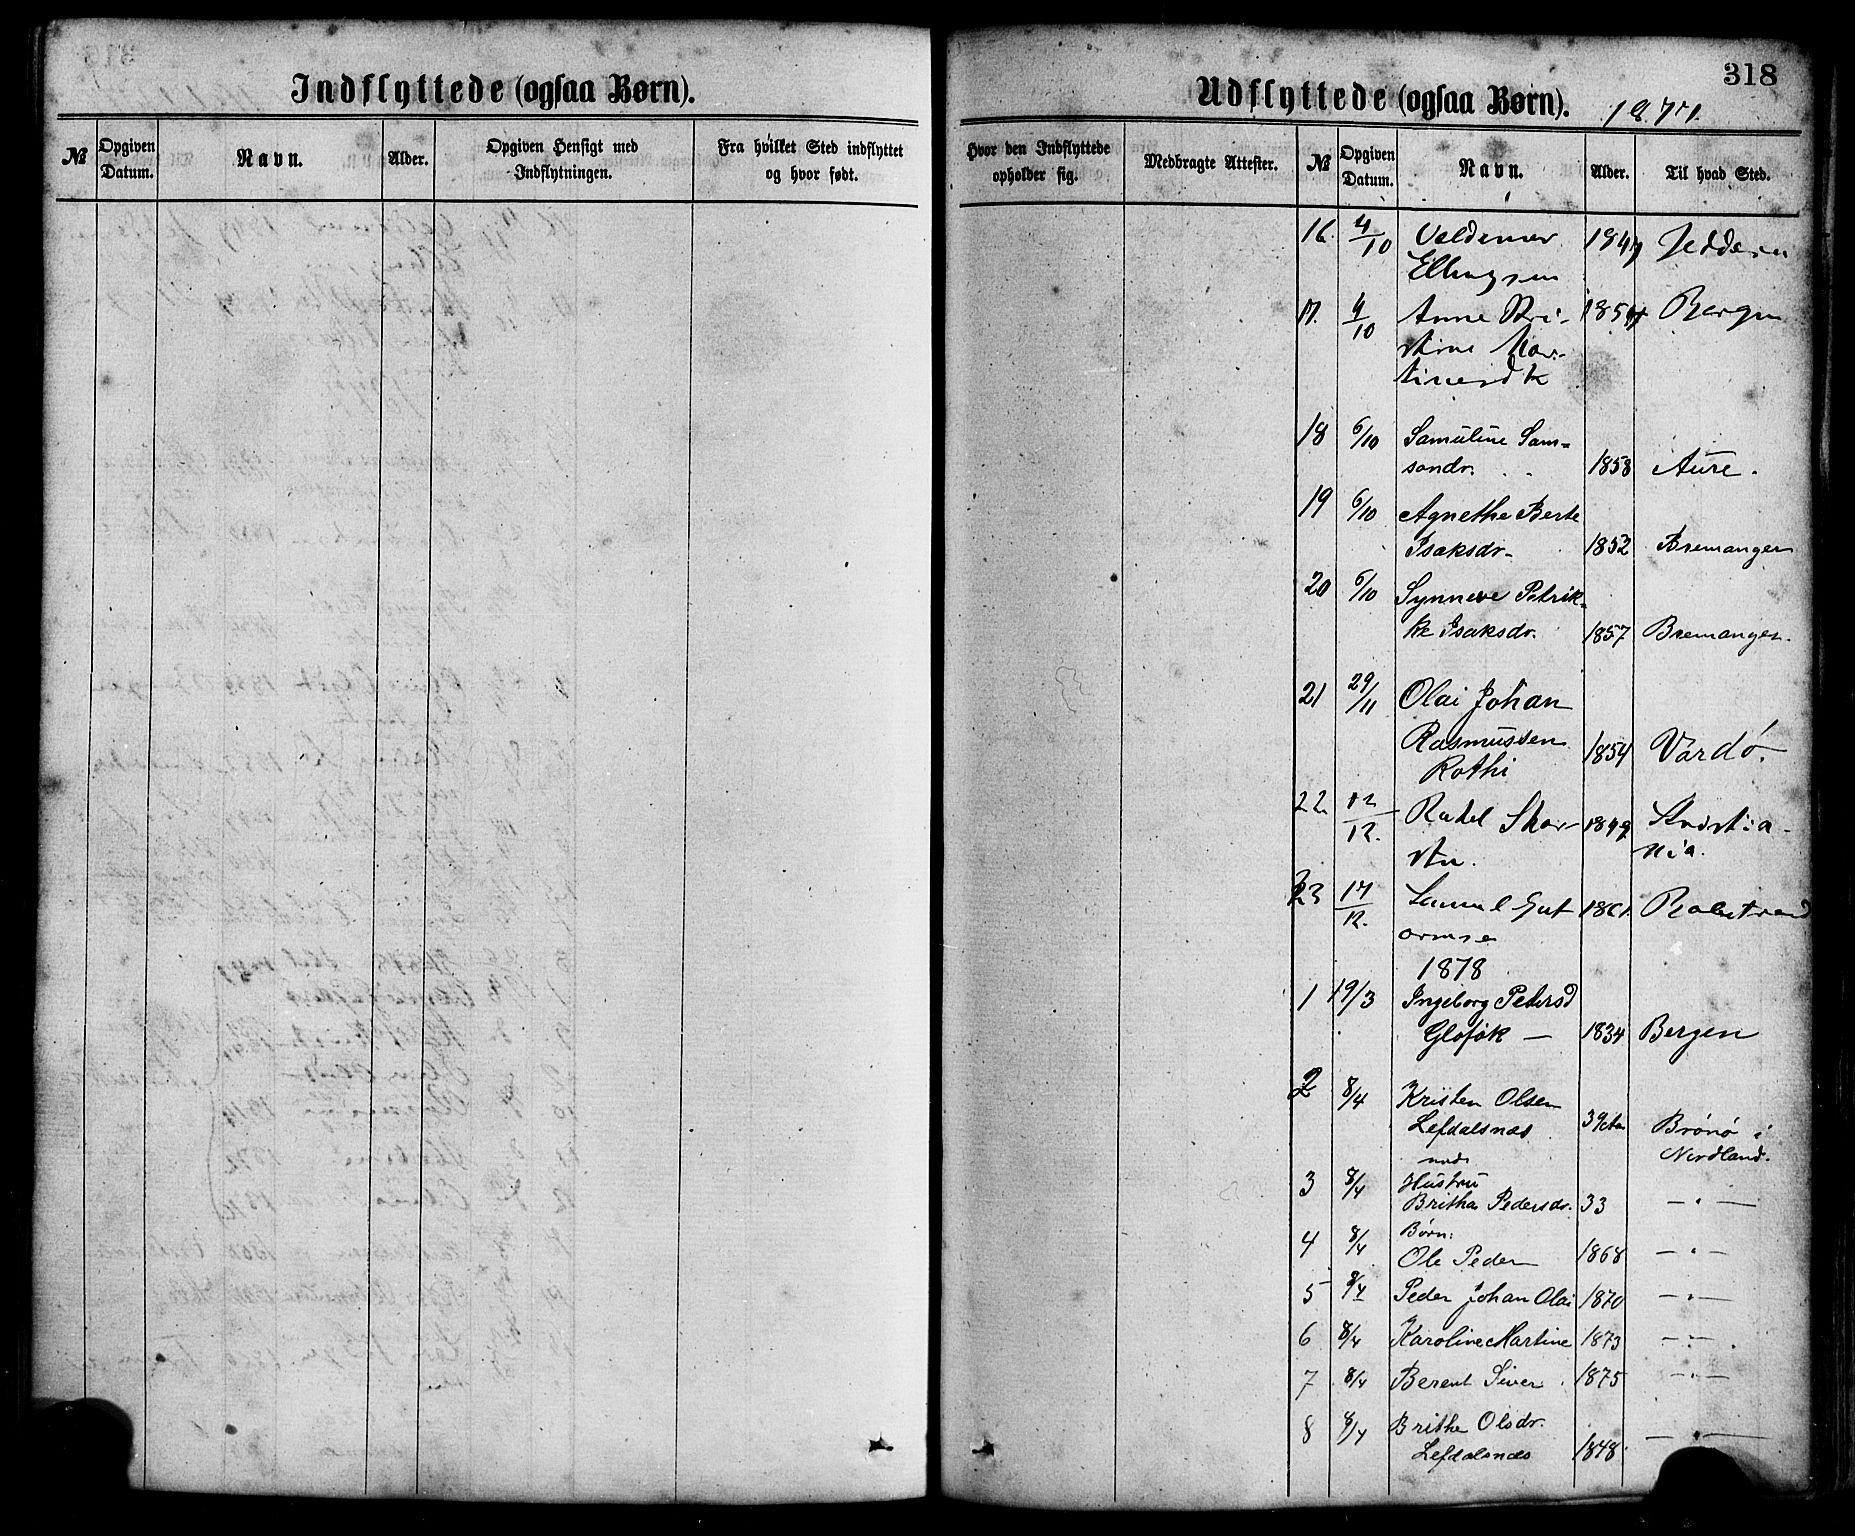 Indflyttede (ogsaa Børn).
№
Opgiven Datum.
Navn.
Alder.
Opgiven Hensigt med Indflytningen.
Fra hvilket Sted indflyttet og hvor født.
318
Udflyttede (ogsaa Børn). 1877.
Hvor den Indflyttede opholder sig.
Medbragte Attester.
№
Opgiven Datum.
Navn.
Alder.
Til hvad Sted.
16. 4/10 Valdemar
Ellingsen
17. 4/10 Anne Kri-
stine Mar-
tinesdt Bergen
18 6/10 Samuline Sam-
sondr. 1858 Aure.
19 6/10 Agnethe Berte
Isaksdr. 1852 Bremanger
20 6/10 Synneve Petrik-
ke Isaksdr. 1857 Bremanger.
21 29/11 Olai Johan
Rasmussen 1854 Vardø.
Rothi
22 12/12. Rakel Skar- 1849 Kristia-
sten. nia.
23 17/12. Samuel Gut 1861.
ormse
1878
1 19/3 Ingeborg Petersd
Glofok — 1834 Bergen
2 8/4 Kristen Olsen
Lefdalsnæs Brønø i
Nordland.
3 8/4 Hustru
Britha Pedersdr. 33 — " —
4 8/4 Børn:
Ole Peder 1868 — " —
5 8/4 Peder Johan Olai 1870 — " —
6 8/4 Karoline Martine 1873 — " —
7 8/4 Berent Siver 1875 — " —
8 8/4 Brithe Olsdr.
Lefdalsnæs 1848. — " —